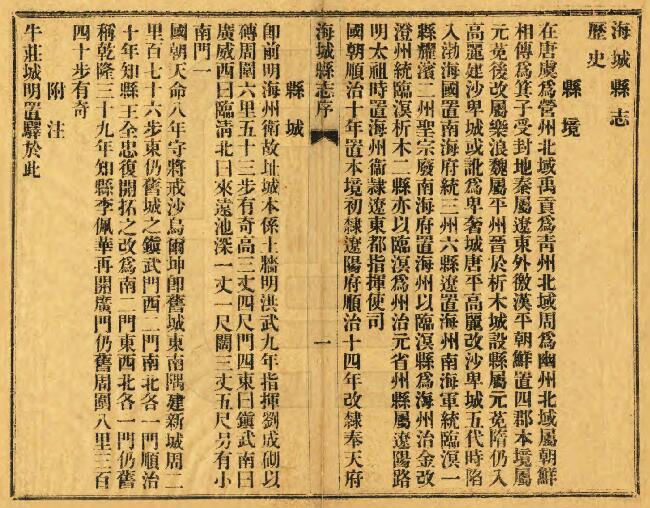 海城縣志
歷史
縣境
在唐虞爲營州北域禹貢爲青州北域周爲幽州北域屬朝鮮
相傳爲箕子受封地秦屬遼東外徼漢平朝鮮置四郡本境屬
元菟後改屬樂浪魏屬平州晉於析木城設縣屬元菟隋仍入
高麗建沙卑城或訛爲卑奢城唐平高麗改沙卑城五代時陷
入渤海國置南海府統三州六縣遼置海州南海軍統臨溟一
縣耀濱二州聖宗廢南海府置海州以臨溟縣爲海州治金改
澄州統臨溟析木二縣亦以臨溟爲州治元省州縣屬遼陽路
明太祖時置海州衞隸遼東都指揮使司
國朝順治十年置本境初隸遼陽府順治十四年改隸奉天府
海城縣志序
一
縣城
卽前明海州衛故址城本係土牆明洪武九年指揮劉成砌以
磚周圍六里五十三步有奇高三丈四尺門四東曰鎮武南曰
廣威西曰臨淸北曰來遠池深一丈一尺闊三丈五尺另有小
南門一
國朝天命八年守將戒沙烏爾坤卽舊城東南隅建新城周二
里百七十六步東仍舊城之鎮武門西二門南北各一門順治
十年知縣王全忠復開拓之改爲南二門東西北各一門仍舊
稱乾隆三十九年知縣李佩華再開廣門仍舊周圍八里三百
四十步有奇
附注
牛莊城明置驛於此